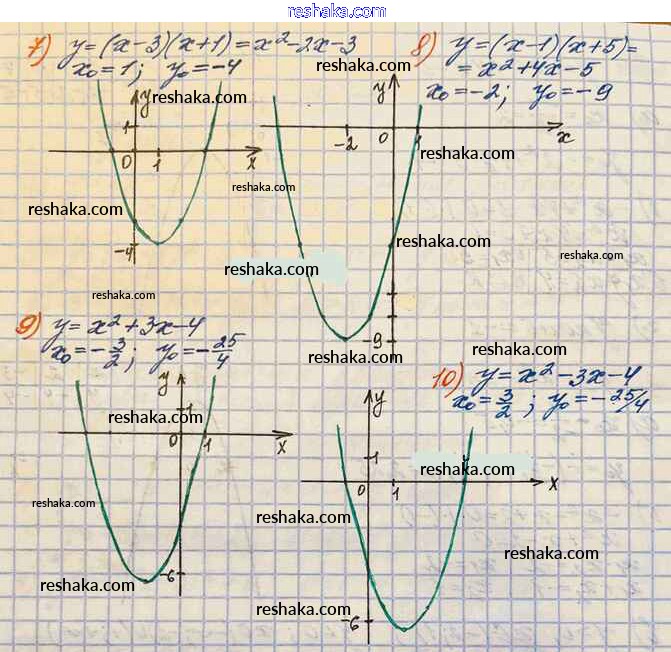 reshaka.com
7) y=(x-3)(x+1)=x²-2x-3
x₀=1; y₀=-4
8) y=(x-1)(x+5)=
=x²+4x-5
x₀=-2; y₀=-9
reshaka.com
reshaka.com
y
1
0
1
x
-4
y
-2
0
1
x
-9
reshaka.com
reshaka.com
reshaka.com
reshaka.com
reshaka.com
reshaka.com
reshaka.com
9) y=x²+3x-4
x₀=-3/2; y₀=-25/4
reshaka.com
reshaka.com
10) y=x²-3x-4
x₀=3/2; y₀=-25/4
reshaka.com
y
1
0
1
x
-6
y
1
0
1
x
-6
reshaka.com
reshaka.com
reshaka.com
reshaka.com
reshaka.com
reshaka.com
reshaka.com